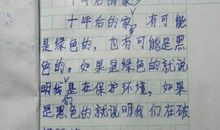 十年后的家，有可能
是绿色的，也有可能是黑
色的。如果是绿色的就说
明我们是在保护环境，如果
是黑色的就说明我们在破